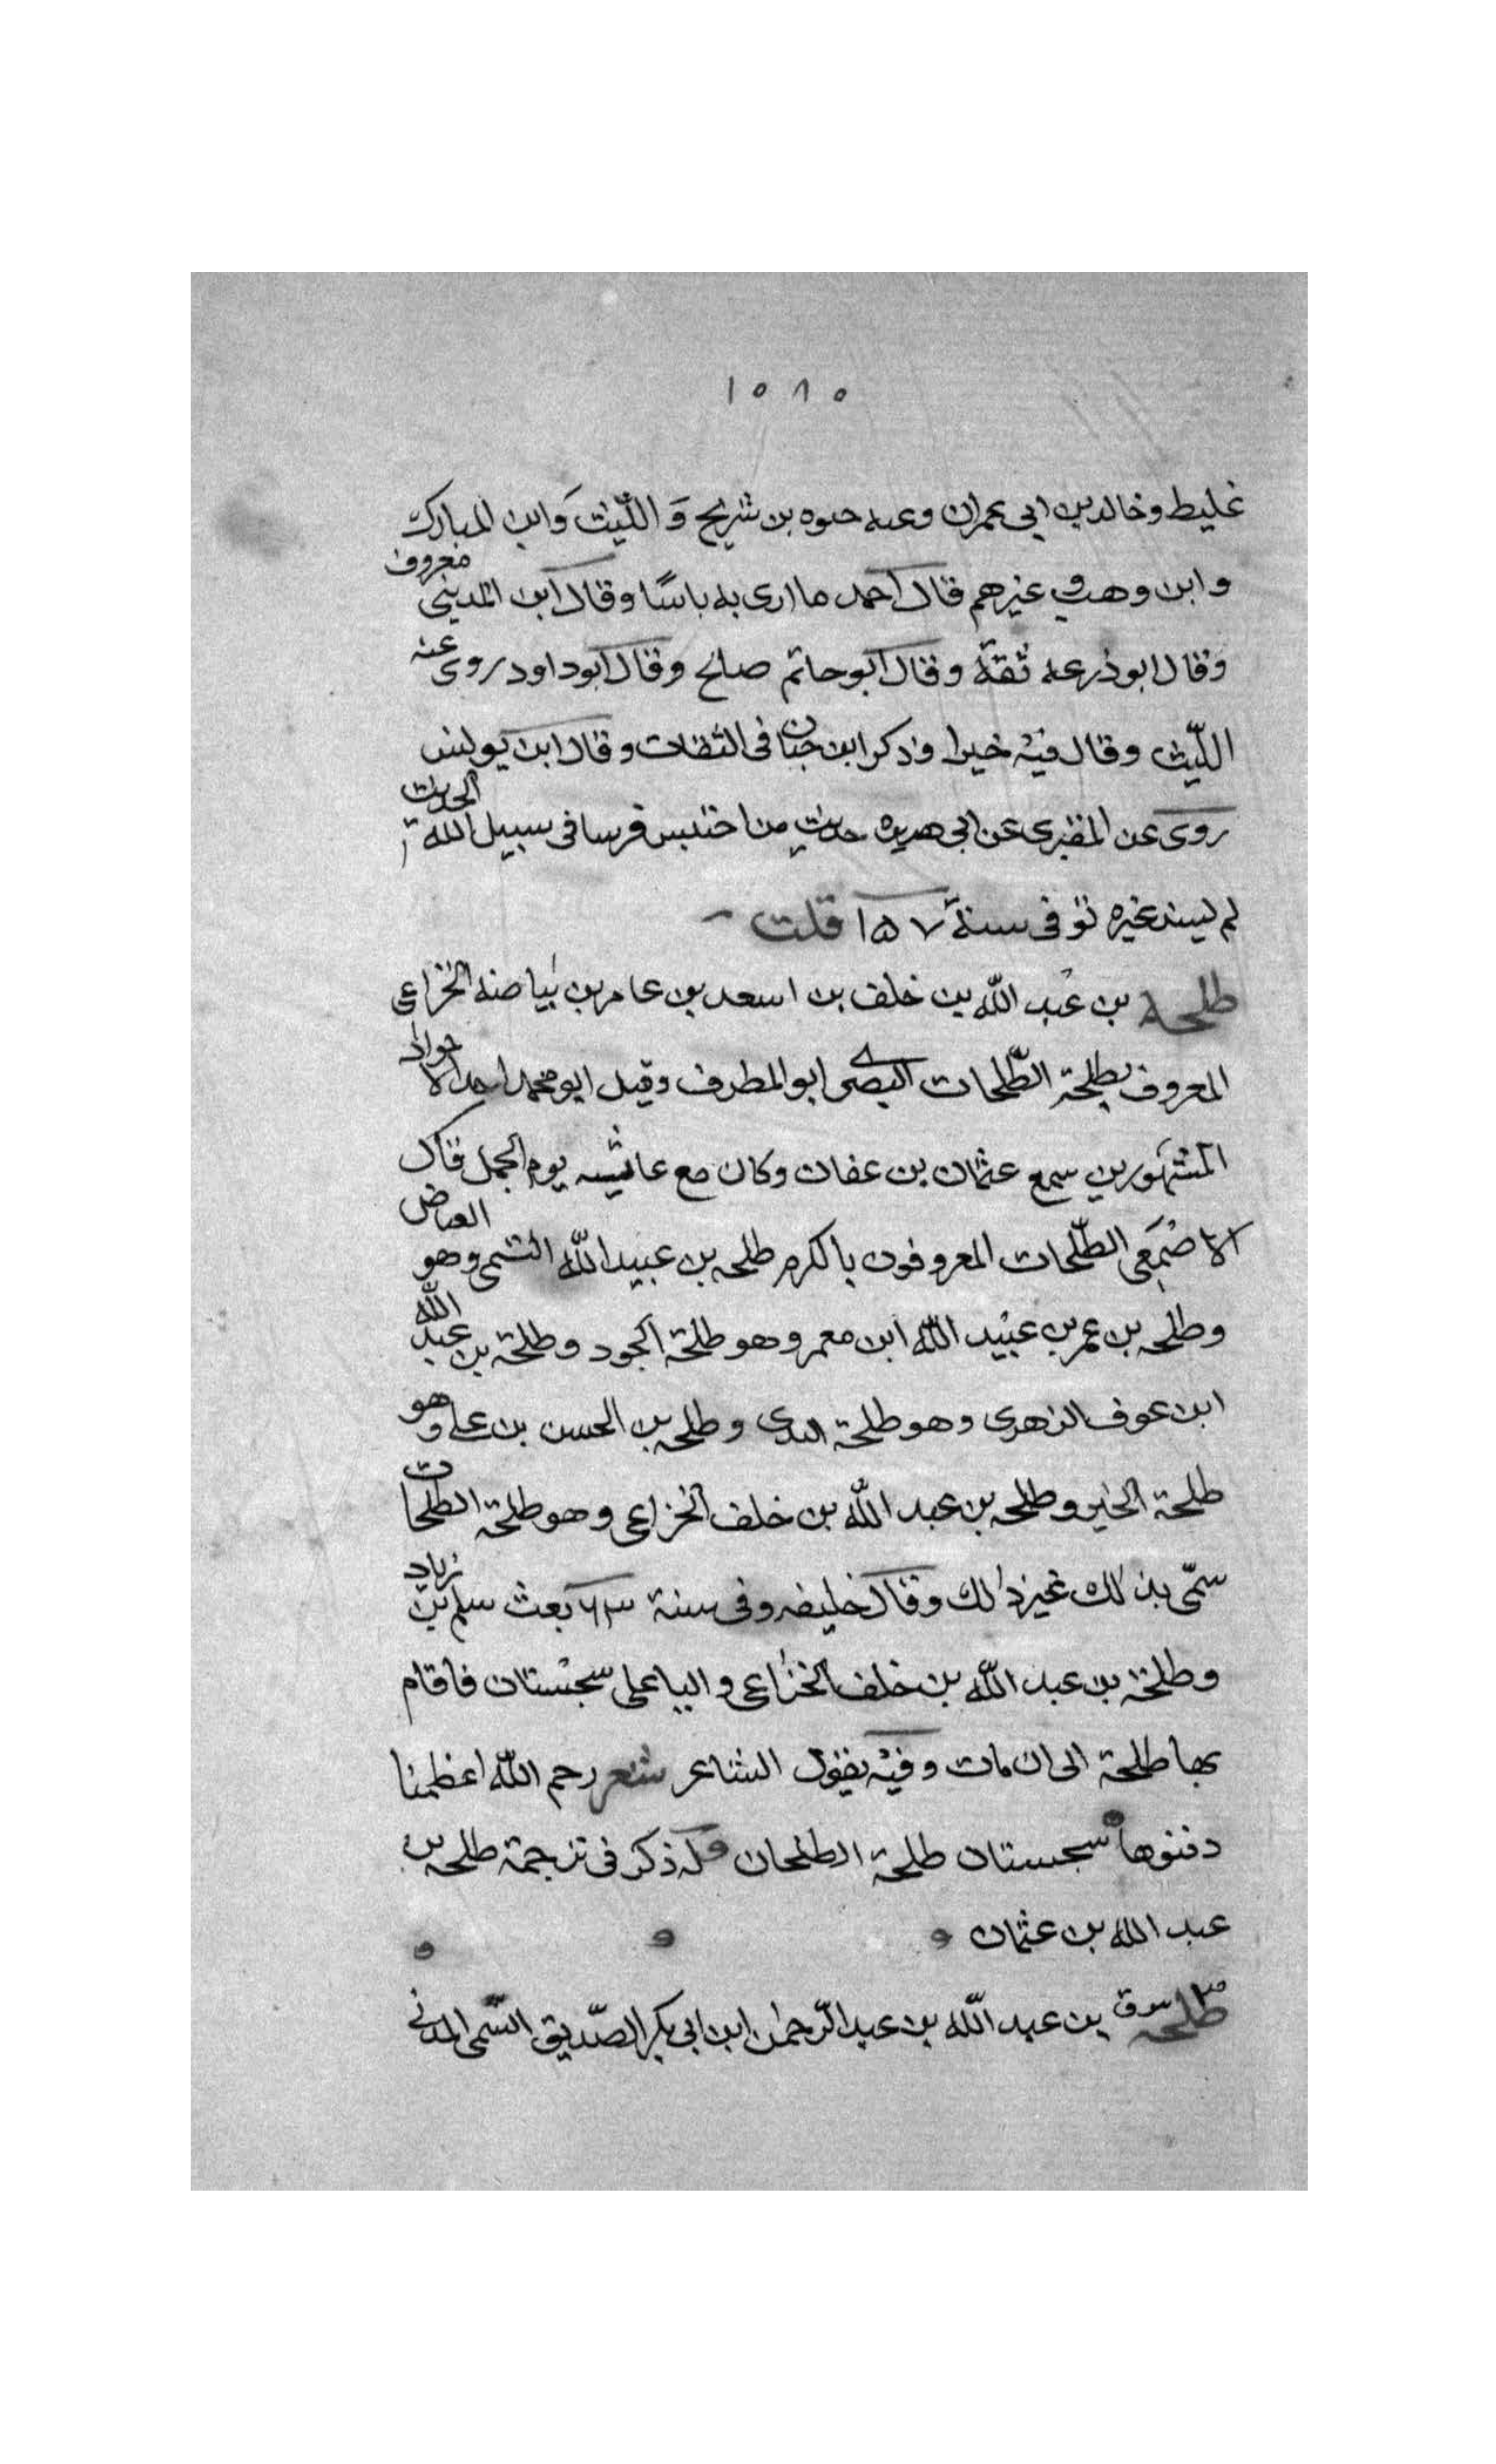 ١٠٨٥
غليط وخالد بن ابى عمران وعنه حيوه بن شريح وَ اللّيث وَابن المبارك
وابن وهب وغيرهم قال احمد ما ارى به باسًا وقال ابن المدينى معروف
وقال ابو ذرعه ثقة وقال ابو حاتم صالح وقال ابو داود روى عنه
اللّيث وقال فيه خيرا وذكر ابن حبان فى الثقات وقال ابن يونس
روى عن المقبرى عن ابى هريره حديث من احتبس فرسا فى سبيل الله الحديث
لم يسند غيره توفى سنة ١٥٧ قلت
طلحة بن عبد اللّه بن خلف بن اسعد بن عامر بن بياضه الخزاعى
المعروف بطلحة الطّلحات البصرى ابو المطرف وقيل ابو محمد احد الاجواد
المشهورين سمع عثمان بن عفان وكان مع عائشه يوم الجمل قال
الاصمعى الطّلحات المعروفون بالكرم طلحه بن عبيد اللّه التيمى وهو الفياض
وطلحه بن عمر بن عبيد اللّه ابن معمر وهو طلحة الجود وطلحة بن عبد اللّه
ابن عوف الزهرى وهو طلحة الندى وطلحه بن الحسن بن على وهو
طلحة الخير وطلحه بن عبد اللّه بن خلف الخزاعى وهو طلحة الطلحات
سمّى بذلك غير ذلك وقال خليفه وفى سنة ٦٣ بعث سلم بن زياد
وطلحة بن عبد اللّه بن خلف الخزاعى واليا على سجستان فاقام
بها طلحة الى ان مات وفيه يقول الشاعر شعر رحم اللّه اعظمنا
دفنوها سجستان طلحة الطلحان وله ذكر فى ترجمة طلحه بن
عبد الله بن عثمان
طلحه بن عبد اللّه بن عبد الرّحمن ابن ابى بكر الصّديق التيمى المدنى